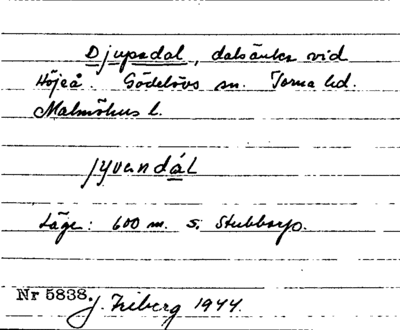 Djupadal, dalsänka vid
Höjeå. Gödelövs sn. Torna hd.
Malmöhus l.
jyvandál
Läge: 600 m. s. Stubbarp.
Nr 5838. J. Friberg 1944.